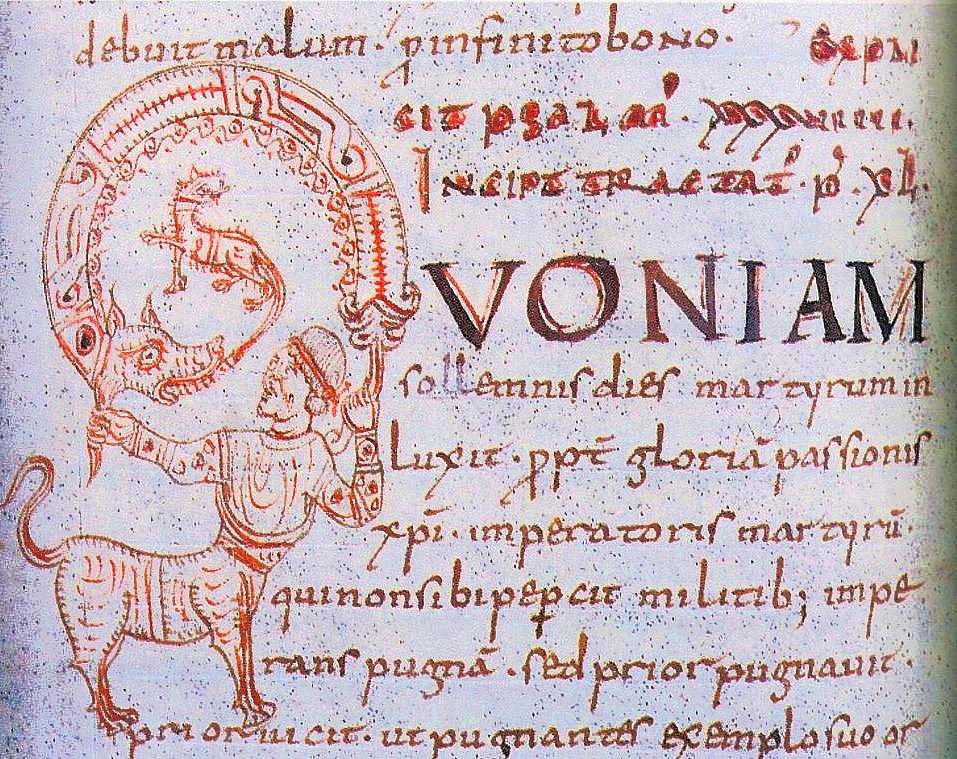 debuit malum · ꝓ infinito bono · Expli
cit psalm̄ · xxxxuiiii ·
Incipt tractat̄ · p̄ · xl ·
QVONIAM
sollemnis dies martyrum in
luxit · ꝓpt̄ gloriā passionis
xp̄i · imperatoris martyrū ·
qui non sibi peꝑcit militib; impe
rans pugnā · sed prior pugnauit ·
prior uicit · ut pugnantes exemplo suo